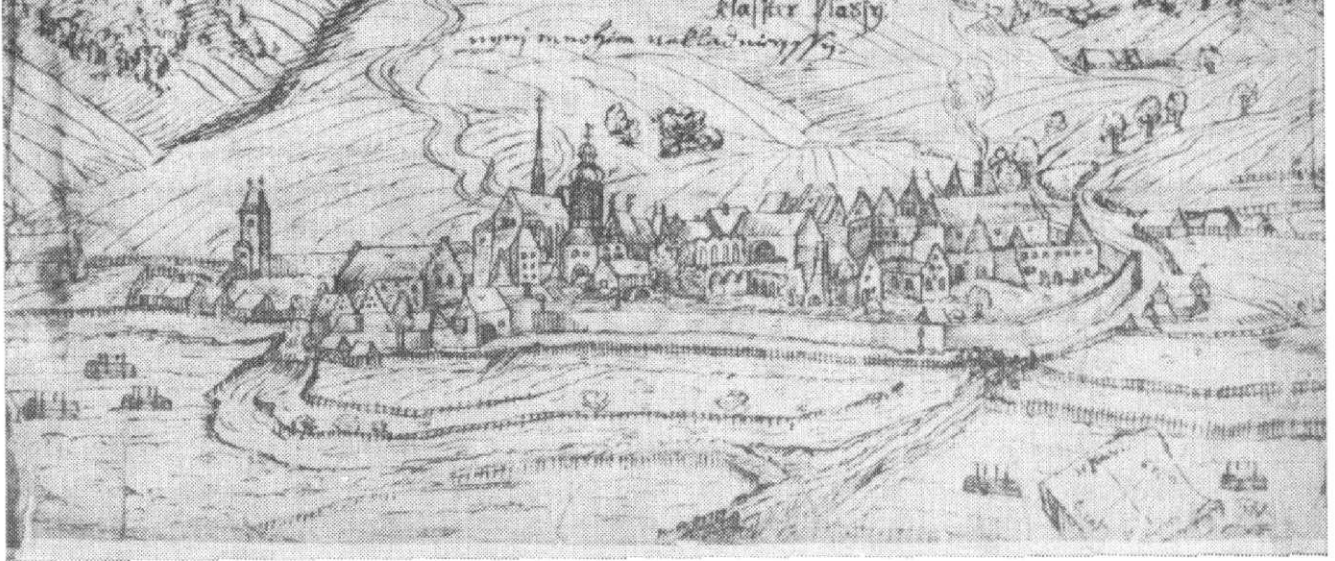 klaster Plassy
nynj mnohem nakladnieyssy.